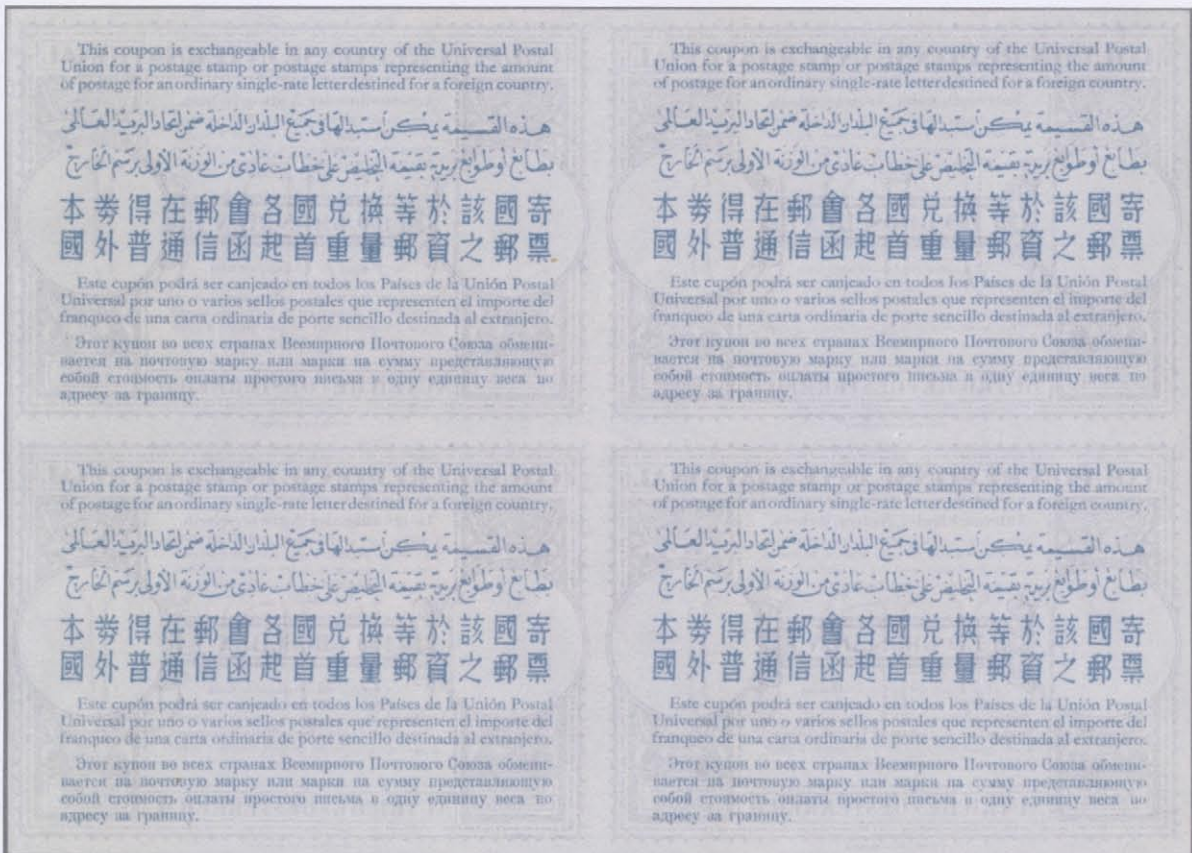 This coupon is exchangeable in any country of the Universal Postal
Union for a postage stamp or postage stamps representing the amount
of postage for an ordinary single-rate letter destined for a foreign country.
هذه القسيمة يمكن استبدالها في جميع البلدان الداخلة ضمن اتحاد البريد العالمي
بطابع أو طوابع بريدية بقيمة التخليص على خطاب عادي من الوزنة الأولى برسم الخارج
本劵得在郵會各國兌換等於該國寄
國外普通信函起首重量郵資之郵票
Este cupón podrá ser canjeado en todos los Países de la Unión Postal
Universal por uno o varios sellos postales que representen el importe del
franqueo de una carta ordinaria de porte sencillo destinada al extranjero.
Этот купон во всех странах Всемирного Почтового Союза обмени-
вается на почтовую марку или марки на сумму представляющую
собой стоимость оплаты простого письма в одну единицу веса по
адресу за границу.
This coupon is exchangeable in any country of the Universal Postal
Union for a postage stamp or postage stamps representing the amount
of postage for an ordinary single-rate letter destined for a foreign country.
هذه القسيمة يمكن استبدالها في جميع البلدان الداخلة ضمن اتحاد البريد العالمي
بطابع أو طوابع بريدية بقيمة التخليص على خطاب عادي من الوزنة الأولى برسم الخارج
本劵得在郵會各國兌換等於該國寄
國外普通信函起首重量郵資之郵票
Este cupón podrá ser canjeado en todos los Países de la Unión Postal
Universal por uno o varios sellos postales que representen el importe del
franqueo de una carta ordinaria de porte sencillo destinada al extranjero.
Этот купон во всех странах Всемирного Почтового Союза обмени-
вается на почтовую марку или марки на сумму представляющую
собой стоимость оплаты простого письма в одну единицу веса по
адресу за границу.
This coupon is exchangeable in any country of the Universal Postal
Union for a postage stamp or postage stamps representing the amount
of postage for an ordinary single-rate letter destined for a foreign country.
هذه القسيمة يمكن استبدالها في جميع البلدان الداخلة ضمن اتحاد البريد العالمي
بطابع أو طوابع بريدية بقيمة التخليص على خطاب عادي من الوزنة الأولى برسم الخارج
本劵得在郵會各國兌換等於該國寄
國外普通信函起首重量郵資之郵票
Este cupón podrá ser canjeado en todos los Países de la Unión Postal
Universal por uno o varios sellos postales que representen el importe del
franqueo de una carta ordinaria de porte sencillo destinada al extranjero.
Этот купон во всех странах Всемирного Почтового Союза обмени-
вается на почтовую марку или марки на сумму представляющую
собой стоимость оплаты простого письма в одну единицу веса по
адресу за границу.
This coupon is exchangeable in any country of the Universal Postal
Union for a postage stamp or postage stamps representing the amount
of postage for an ordinary single-rate letter destined for a foreign country.
هذه القسيمة يمكن استبدالها في جميع البلدان الداخلة ضمن اتحاد البريد العالمي
بطابع أو طوابع بريدية بقيمة التخليص على خطاب عادي من الوزنة الأولى برسم الخارج
本劵得在郵會各國兌換等於該國寄
國外普通信函起首重量郵資之郵票
Este cupón podrá ser canjeado en todos los Países de la Unión Postal
Universal por uno o varios sellos postales que representen el importe del
franqueo de una carta ordinaria de porte sencillo destinada al extranjero.
Этот купон во всех странах Всемирного Почтового Союза обмени-
вается на почтовую марку или марки на сумму представляющую
собой стоимость оплаты простого письма в одну единицу веса по
адресу за границу.